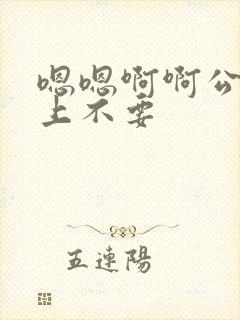 嗯嗯啊啊公
上不要
五連陽